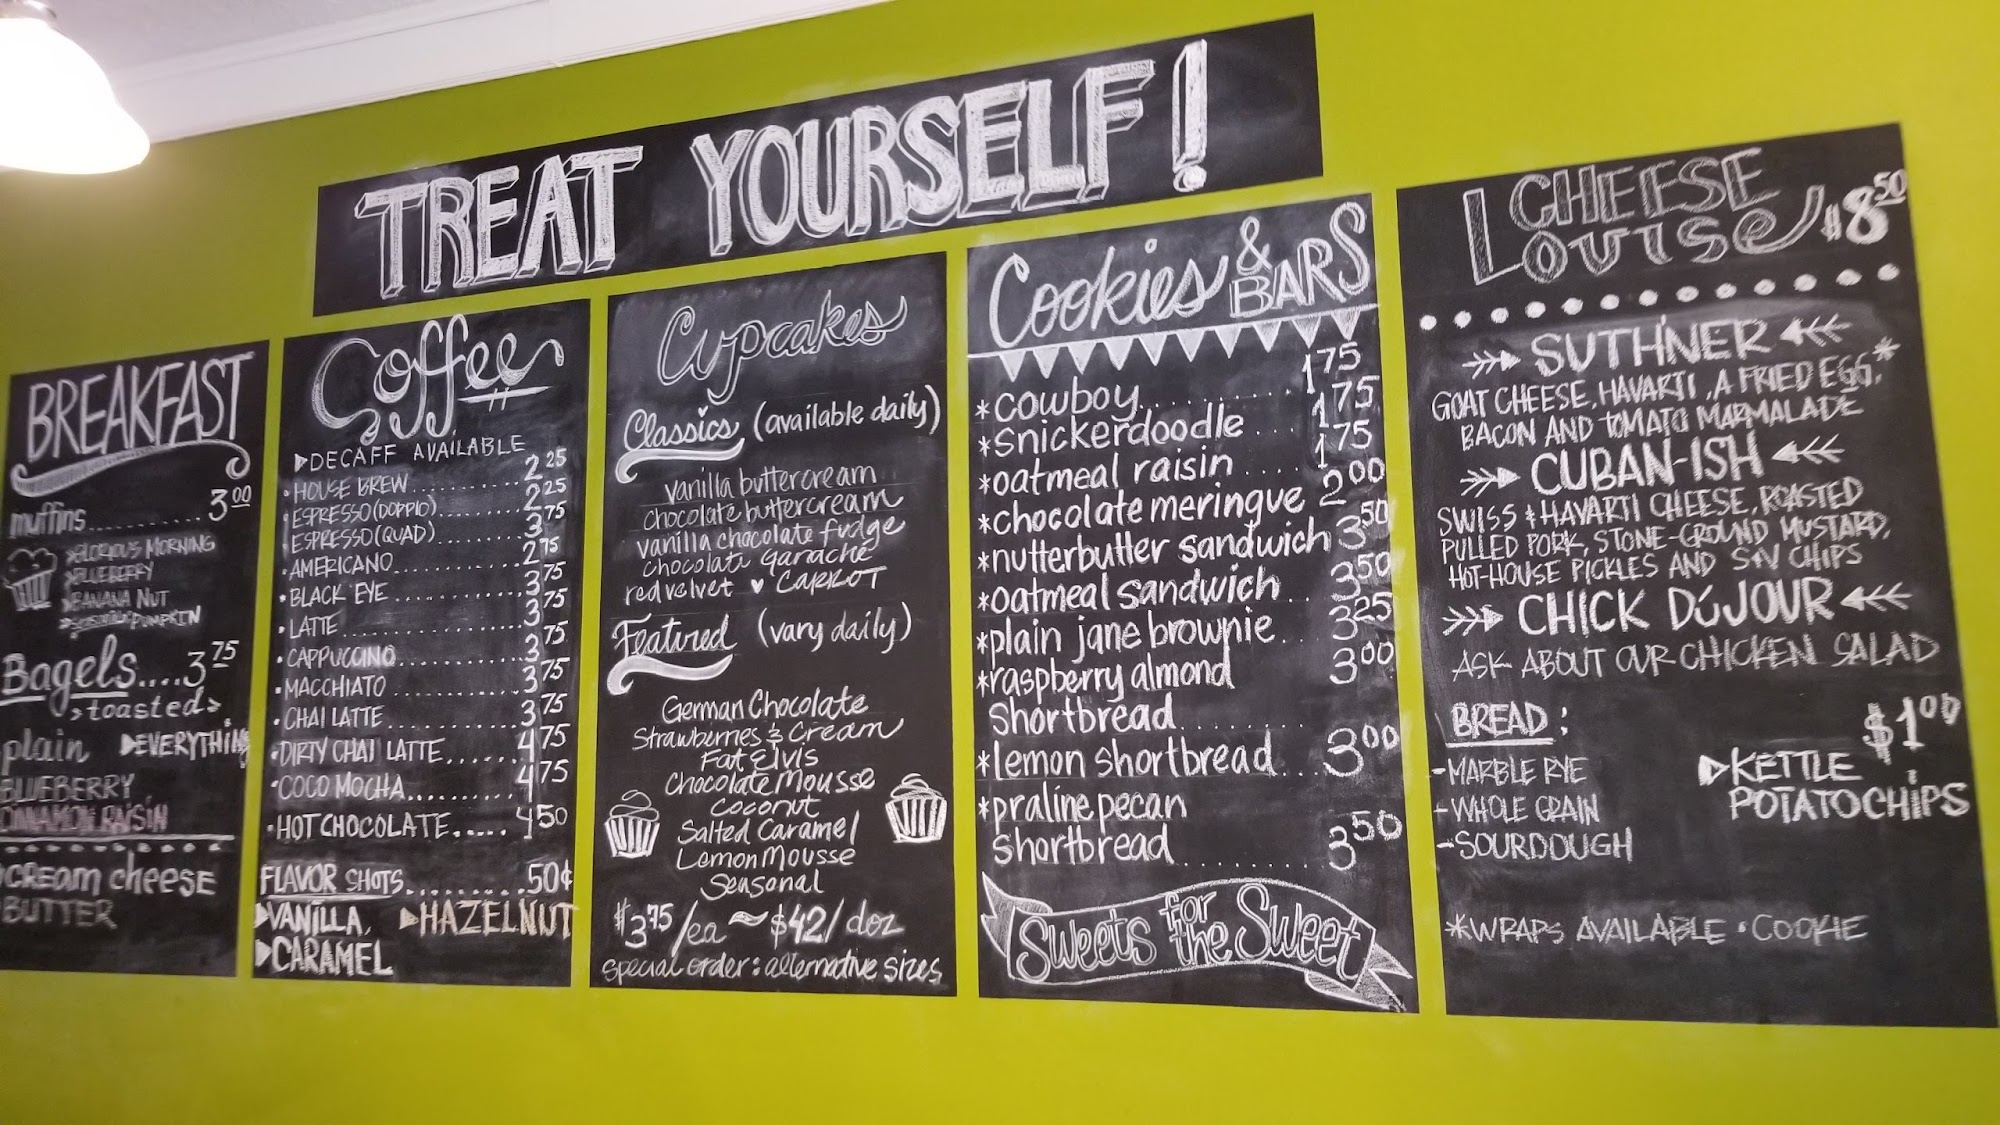 TREAT YOURSELF!
BREAKFAST
muffins........... 3.00
GLORIOUS MORNING
BLUEBERRY
BANANA NUT
PUMPKIN
Bagels....3.75
>toasted>
plain ▷EVERYTHING
BLUEBERRY
CINNAMON RAISIN
CREAM cheese
BUTTER
Coffee
▷DECAFF AVAILABLE
•HOUSE BREW........... 2.25
•ESPRESSO (DOPPIO)........... 2.25
•ESPRESSO (QUAD)........... 3.75
•AMERICANO........... 2.75
•BLACK EYE........... 3.75
•LATTE........... 3.75
•CAPPUCCINO........... 3.75
•MACCHIATO........... 3.75
•CHAI LATTE........... 3.75
•DIRTY CHAI LATTE........ 4.75
•COCO MOCHA........... 4.75
•HOT CHOCOLATE..... 4.50
FLAVOR SHOTS......... .50¢
▷VANILLA, ▷HAZELNUT
▷CARAMEL
Cupcakes
Classics (available daily)
vanilla buttercream
chocolate buttercream
vanilla chocolate fudge
chocolate ganache
red velvet ♥ CARROT
Featured (vary daily)
German Chocolate
Strawberries & Cream
Fat Elvis
Chocolate Mousse
Coconut
Salted Caramel
Lemon Mousse
Seasonal
$3.75/ea ~ $42/doz
special order: alternative sizes
Cookies & BARS
*cowboy........... 1.75
*snickerdoodle.... 1.75
*oatmeal raisin..... 1.75
*chocolate meringue 2.00
*nutterbutter sandwich 3.50
*oatmeal sandwich.. 3.50
*plain jane brownie.. 3.25
*raspberry almond 3.00
shortbread..........
*lemon shortbread... 3.00
*praline pecan
shortbread......... 3.50
Sweets for the Sweet
CHEESE
LOUISE $8.50
SUTH'NER
GOAT CHEESE, HAVARTI, A FRIED EGG,*
BACON AND TOMATO MARMALADE
CUBAN-ISH
SWISS & HAVARTI CHEESE, ROASTED
PULLED PORK, STONE-GROUND MUSTARD,
HOT-HOUSE PICKLES AND S+V CHIPS
CHICK DúJOUR
ASK ABOUT OUR CHICKEN SALAD
BREAD: $1.00
-MARBLE RYE ▷KETTLE
-WHOLE GRAIN POTATO CHIPS
-SOURDOUGH
*WRAPS AVAILABLE • COOKIE